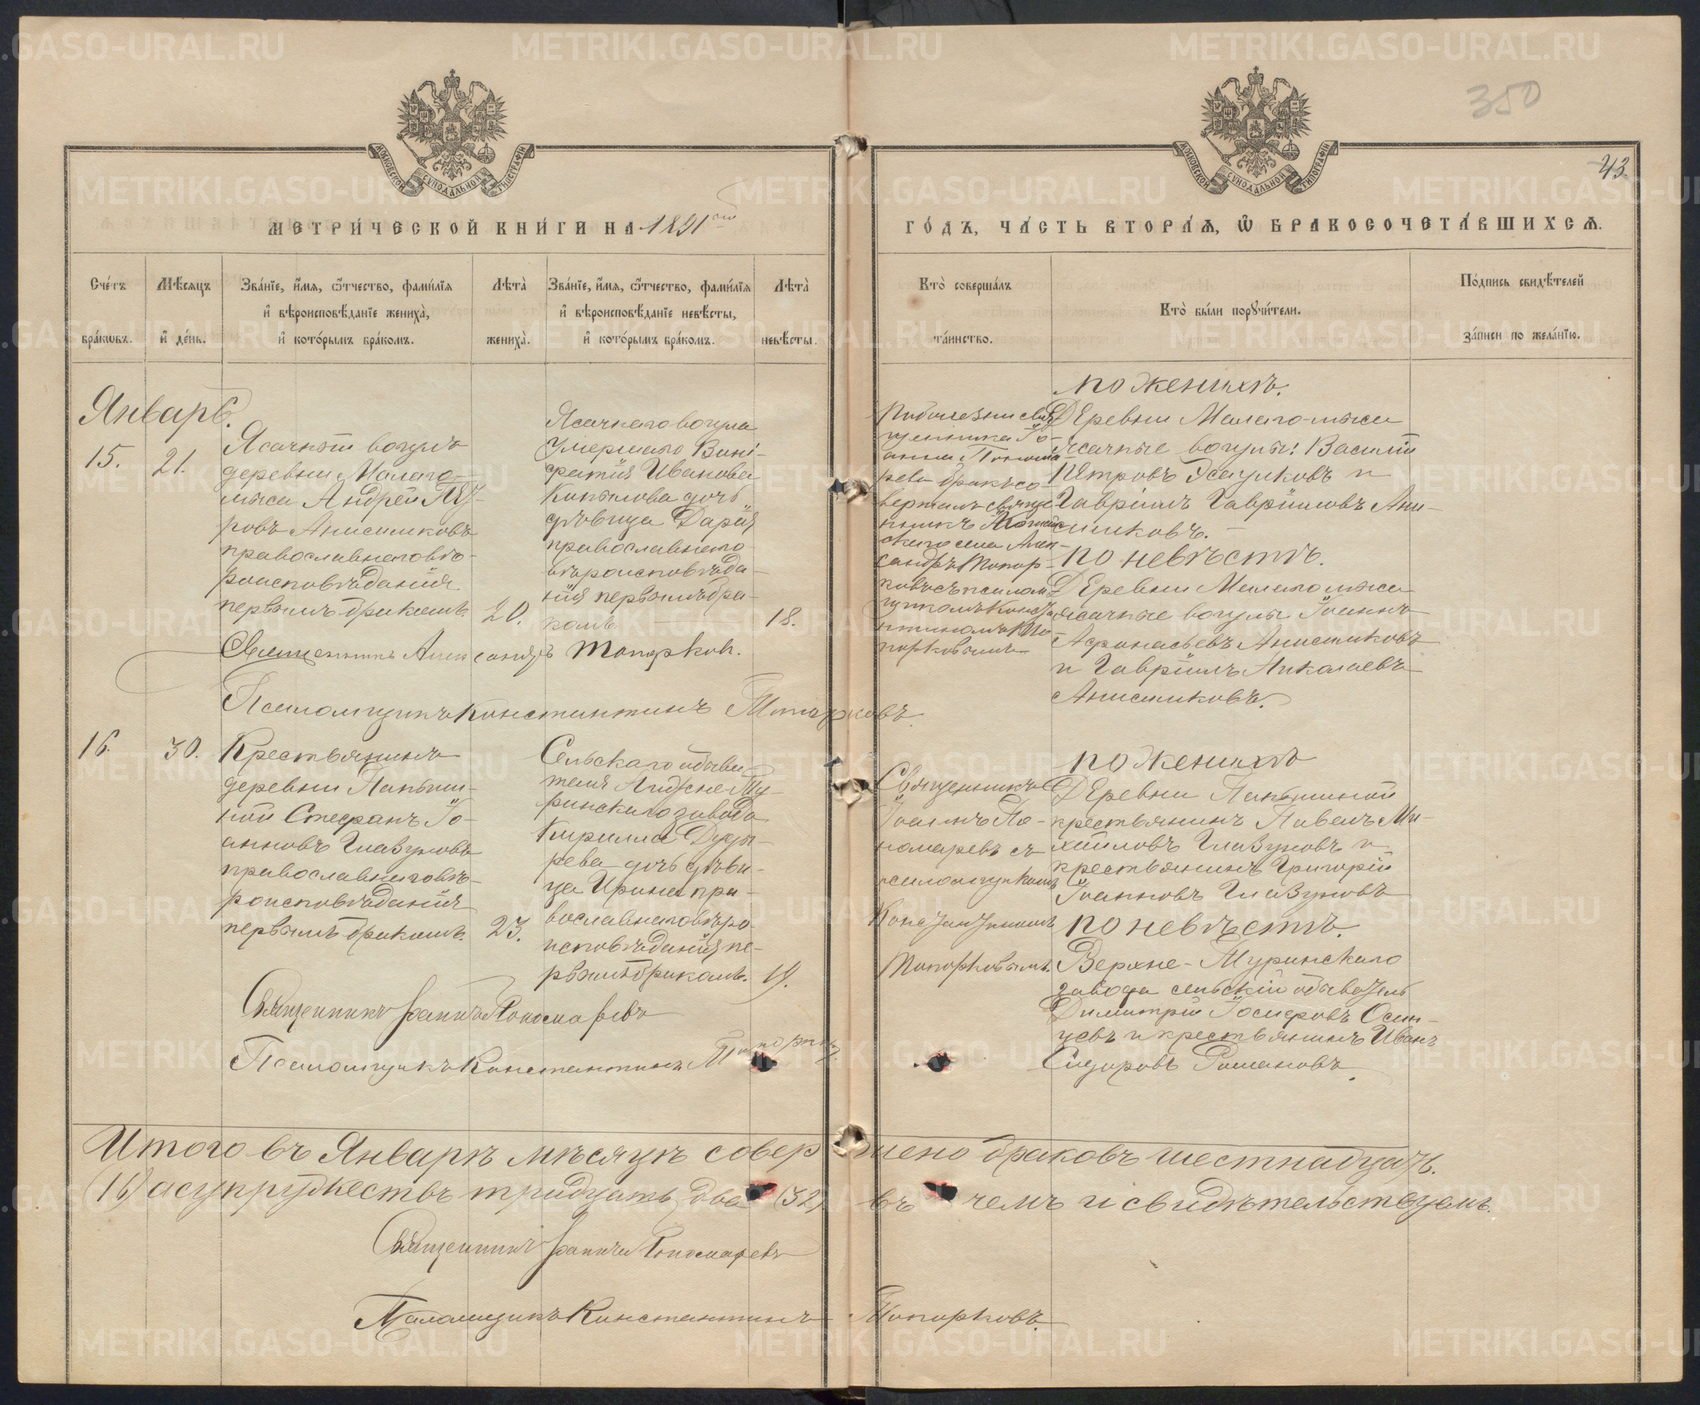 350
43
МОСКОВСКОЙ СѴНОДАЛЬНОЙ ТИПОГРАФІИ
МОСКОВСКОЙ СѴНОДАЛЬНОЙ ТИПОГРАФІИ
МЕТРИ́ЧЕСКОЙ КНИ́ГИ НА 1891
ГО́ДЪ, ЧА́СТЬ ВТОРА́Я, Ѡ҆ БРАКОСОЧЕТА́ВШИХСѦ.
Сче́тъ бра́кωвъ.
Мѣ́сяцъ и҆ де́нь.
Зва́нїе, и҆́мя, ѻ҆́тчество, фами́лїя
и҆ вѣроисповѣ́данїе жениха̀,
и҆ кото́рымъ бра́комъ.
Лѣта̀ жениха̀.
Зва́нїе, и҆́мя, ѻ҆́тчество, фами́лїя
и҆ вѣроисповѣ́данїе невѣ́сты,
и҆ кото́рымъ бра́комъ.
Лѣта̀ невѣ́сты.
Кто̀ соверша́лъ та́инство.
Кто̀ бы́ли порꙋчи́тели.
По́дпись свидѣ́телей за́писи по жела́нїю.
Январь.
15.
21.
Ясачной вогулъ
деревни Малаго-
мыса Андрей Пе-
ровъ Анисимковъ
православнаго вѣ-
роисповѣданія
первымъ бракомъ.
20.
Ясачнаго вогула
умершаго Вони-
фатія Иванова
Копылова дочь
дѣвица Дарія
православнаго
вѣроисповѣда-
нія первымъ бра-
комъ
18.
сандръ Топор-
по женихѣ.
Деревни Малаго-мыса
ясачные вогулы: Василій
Петровъ и
Гавріилъ Гавріиловъ Ани-
симковъ.
по невѣстѣ.
Деревни Малаго мыса
ясачные вогулы Іоаннъ
Афанасьевъ Анисимковъ
и Гавріилъ Николаевъ
Анисимковъ.
Священникъ Александръ Топорков.
Псаломщикъ Константинъ Топорковъ
16.
30.
Крестьянинъ
деревни
Стефанъ Іо-
анновъ Глазуновъ
православнаго вѣ-
роисповѣданія
первымъ бракомъ.
23.
Сельскаго обыва-
теля Нижне-Ту-
ринскаго завода
Кирилла
дочь дѣви-
ца Ирина пра-
вославнаго вѣро-
исповѣданія пе-
рвымъ бракомъ.
19.
Священникъ
Іоаннъ По-
номаревъ съ
псаломщикомъ
Константиномъ
Топорковымъ.
по женихѣ
Деревни
крестьянинъ Павелъ Ми-
хайловъ Глазуновъ и
крестьянинъ Григорій
Іоанновъ Глазуновъ
по невѣстѣ.
Верхне-Туринскаго
завода сельскій обыватель
Димитрій Іосифовъ Осин-
цевъ и крестьянинъ Иванъ
Сидоровъ Романовъ.
Священникъ Іоаннъ Пономаревъ
Псаломщикъ Константинъ Топорковъ
Итого въ Январѣ мѣсяцѣ совершено браковъ шестнадцать.
(16) а супружествъ тридцать два (32) въ чемъ и свидѣтельствуемъ.
Священникъ Іоаннъ Пономаревъ
Псаломщикъ Константинъ Топорковъ.
METRIKI.GASO-URAL.RU